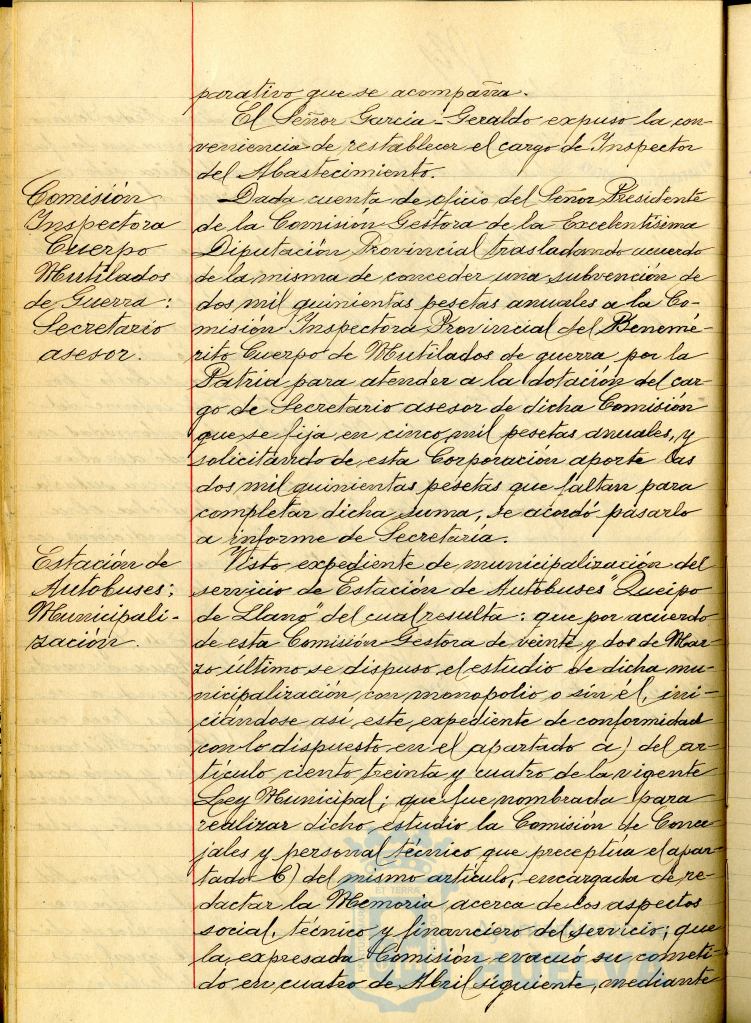 parativo que se acompaña.
El Señor García-Geraldo expuso la con-
veniencia de restablecer el cargo de Inspector
del Abastecimiento.
Comisión
Inspectora
Cuerpo
Mutilados
de Guerra:
Secretario
asesor.
Dada cuenta de oficio del Señor Presidente
de la Comisión Gestora de la Excelentísima
Diputación Provincial trasladando acuerdo
de la misma de conceder una subvención de
dos mil quinientas pesetas anuales a la Co-
misión Inspectora Provincial del Benemé-
rito Cuerpo de Mutilados de guerra por la
Patria para atender a la dotación del car-
go de Secretario asesor de dicha Comisión
que se fija en cinco mil pesetas anuales, y
solicitando de esta Corporación aporte las
dos mil quinientas pesetas que faltan para
completar dicha suma, se acordó pasarlo
a informe de Secretaría.
Estación de
Autobuses;
Municipali-
zación.
Visto expediente de municipalización del
servicio de Estación de Autobuses "Queipo
de Llano" del cual resulta: que por acuerdo
de esta Comisión Gestora de veinte y dos de Mar-
zo último se dispuso el estudio de dicha mu-
nicipalización con monopolio o sin él ini-
ciándose así este expediente de conformidad
con lo dispuesto en el apartado a) del ar-
tículo ciento treinta y cuatro de la vigente
Ley Municipal; que fue nombrada para
realizar dicho estudio la Comisión de Conce-
jales y personal técnico que preceptúa el apar-
tado b) del mismo artículo, encargada de re-
dactar la Memoria acerca de los aspectos
social, técnico y financiero del servicio; que
la expresada Comisión evacuó su cometi-
do en cuatro de Abril siguiente, mediante
HUELVA